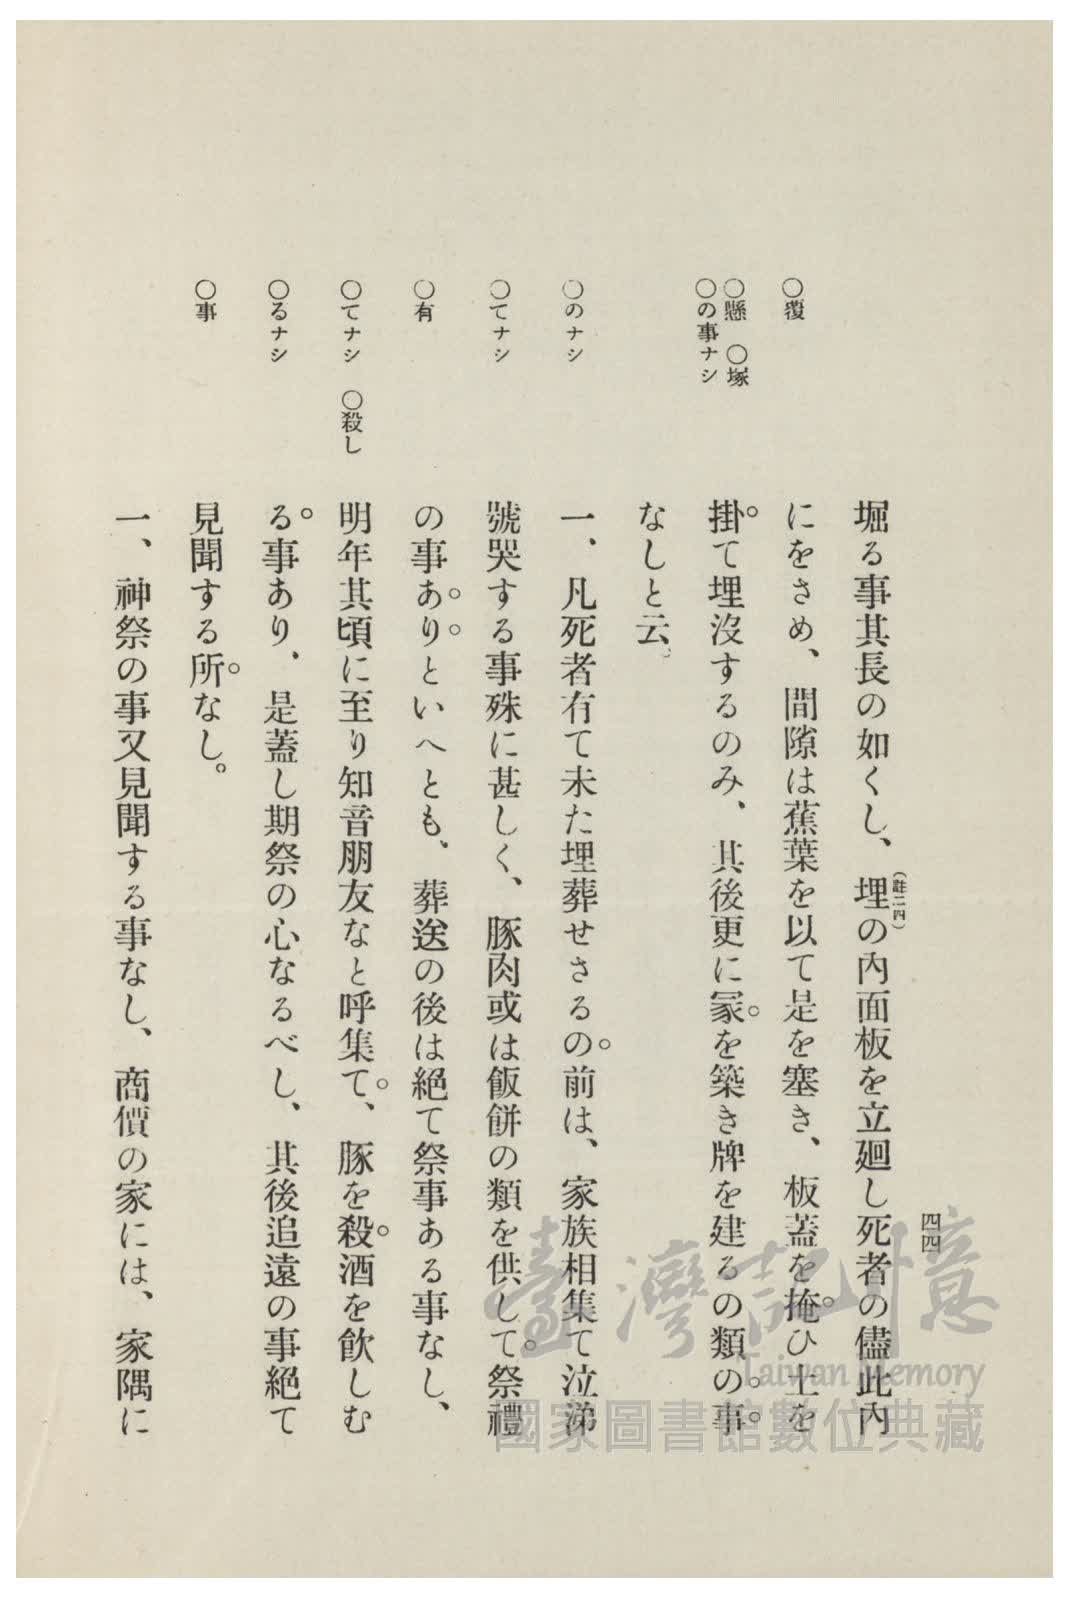 四四
堀る事其長の如くし、埋の內面板を立廻し死者の儘此內
(註二四)
にをさめ、間隙は蕉葉を以て是を塞き、板蓋を掩ひ土を
掛て埋沒するのみ、其後更に冢を築き牌を建るの類の事
なしと云。
一、凡死者有て未た埋葬せさるの前は、家族相集て泣涕
號哭する事殊に甚しく、豚肉或は飯餅の類を供して祭禮
の事ありといへとも、葬送の後は絕て祭事ある事なし、
明年其頃に至り知音朋友なと呼集て、豚を殺酒を飮しむ
る事あり、是蓋し期祭の心なるべし、其後追遠の事絕て
見聞する所なし。
一、神祭の事又見聞する事なし、商價の家には、家隅に
○覆
○懸 ○塚
○の事ナシ
○のナシ
○てナシ
○有
○てナシ ○殺し
○るナシ
○事
臺灣記憶
Taiwan Memory
國家圖書館數位典藏